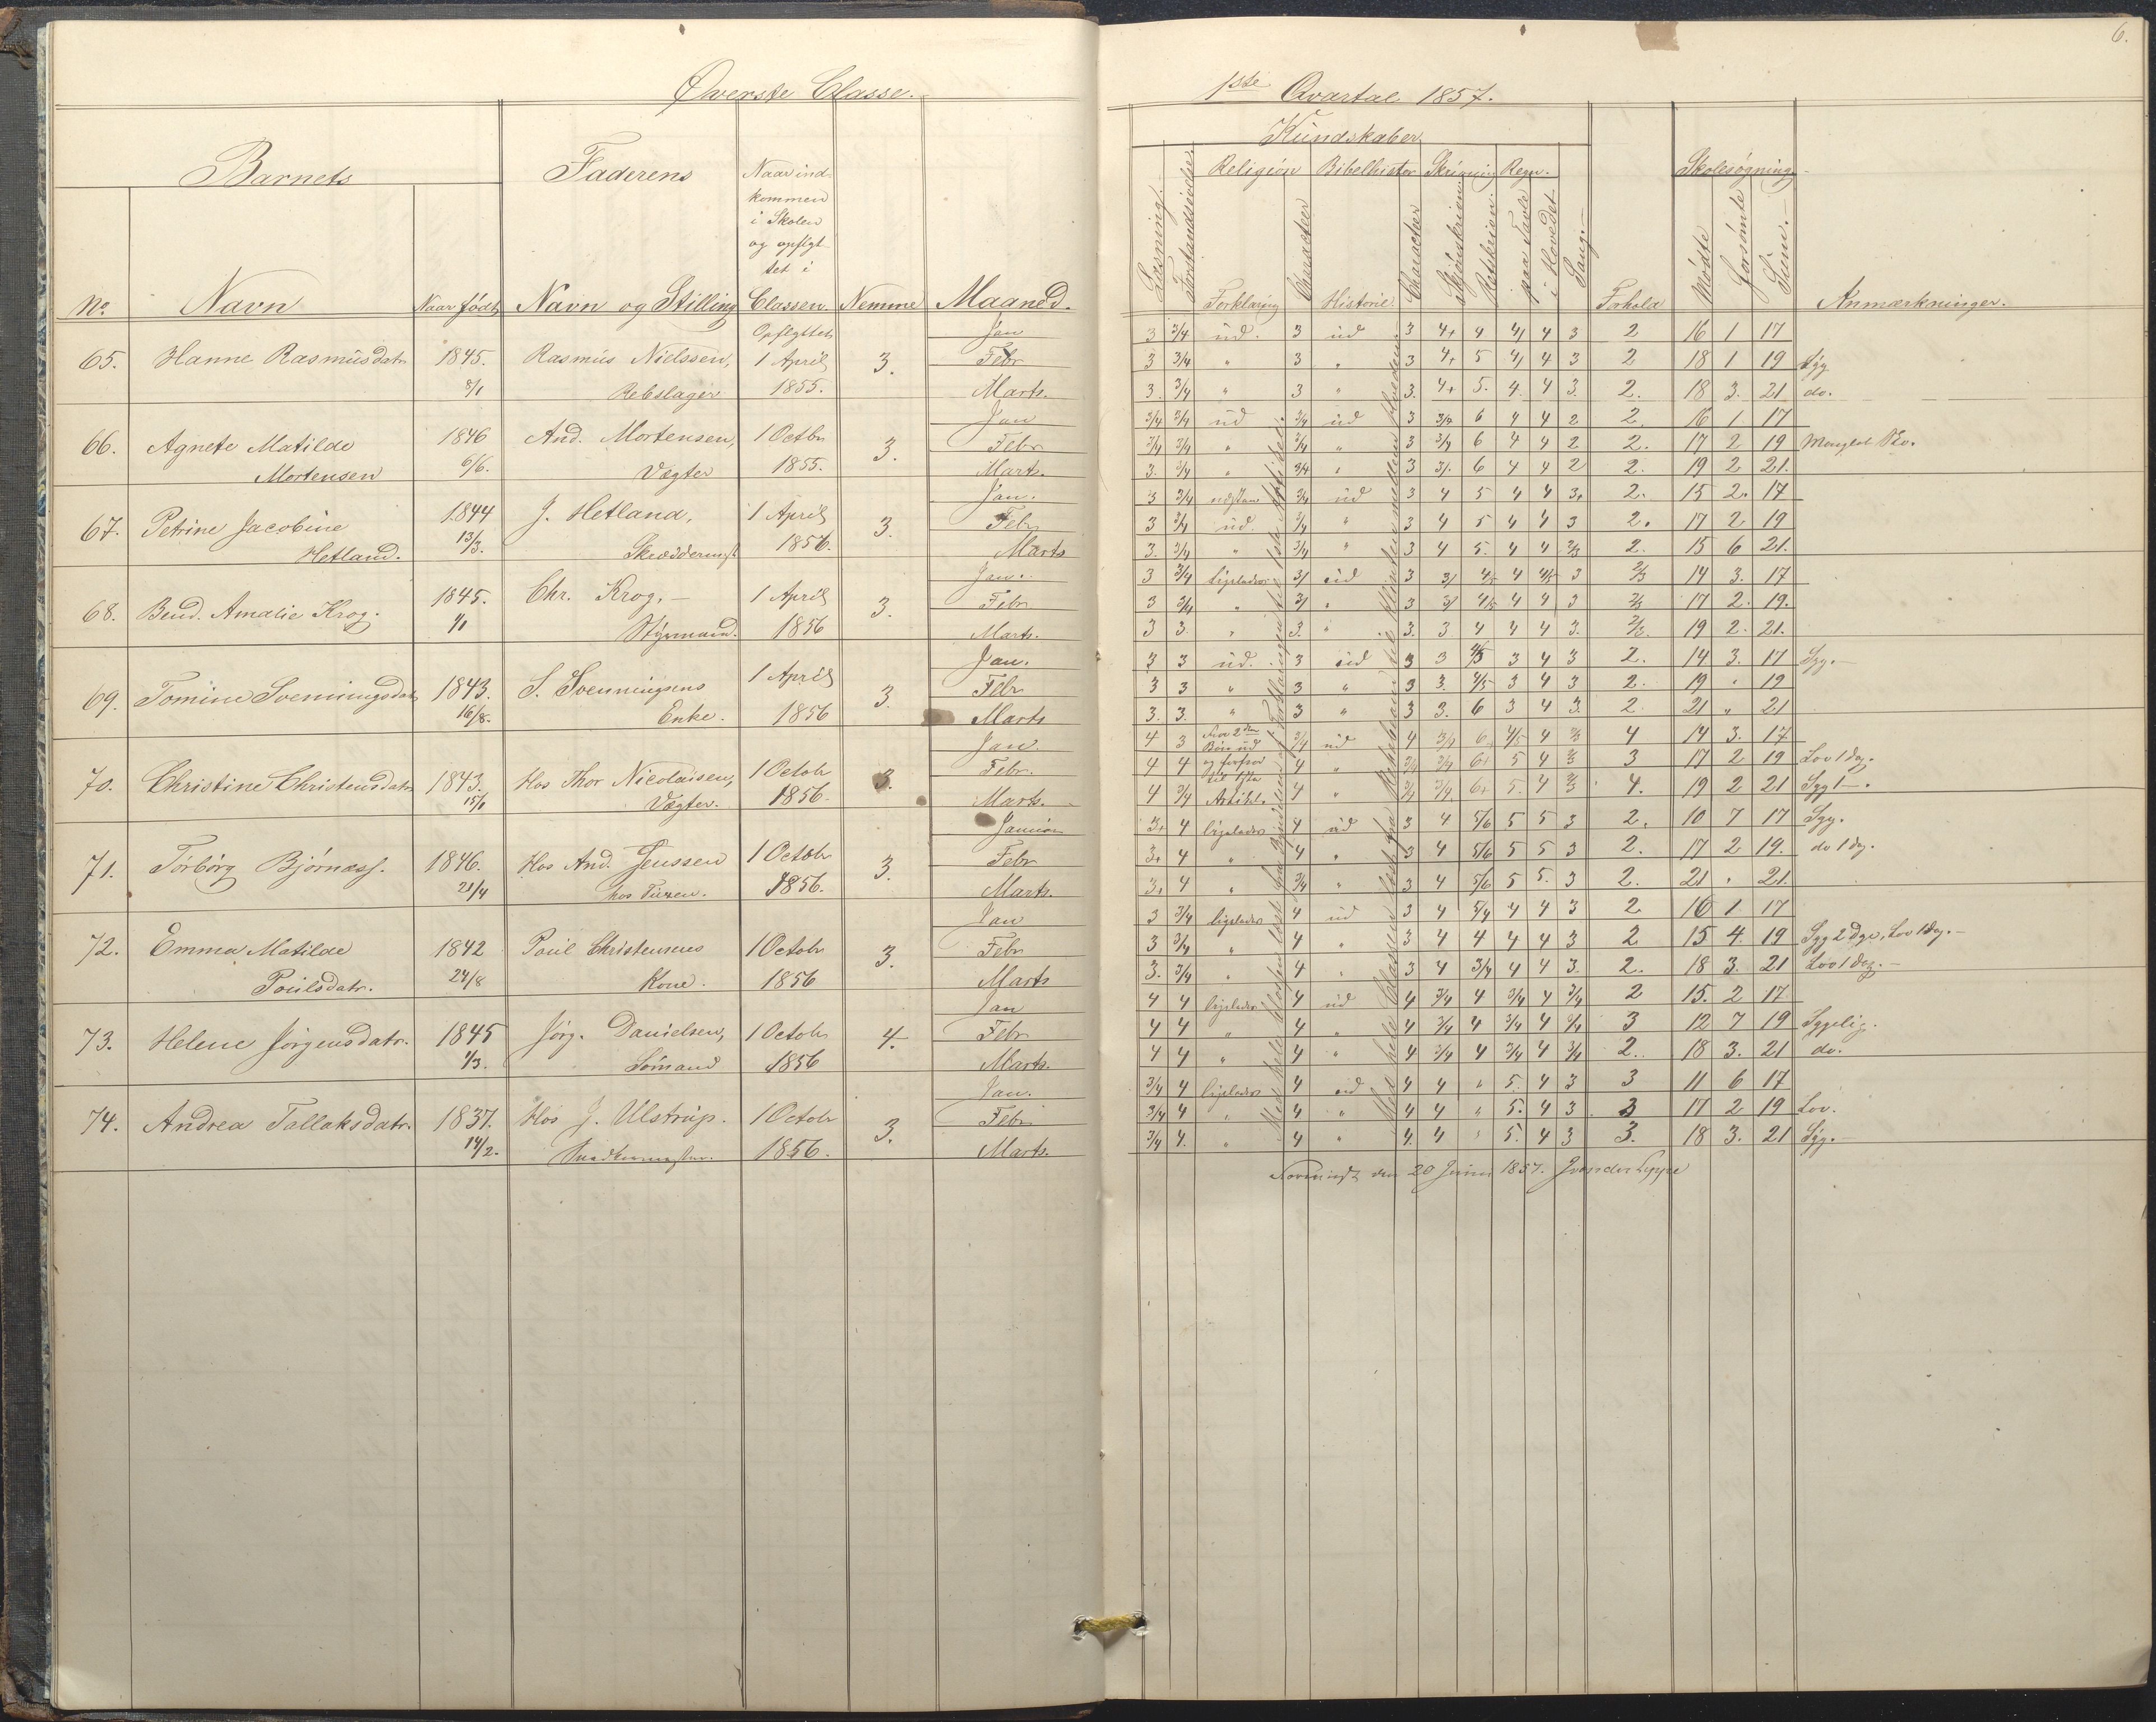 6.
Øverste Classe.
1ste Qvartal 1857.
Barnets
Faderens
Naar ind-
kommen
i Skolen
og opflyt-
tet i
No.
Navn
Naar født
Navn og Stilling
Classen.
Nemme
Maaned.
Kundskaber
Religion
Bibelhistor
Skrivning
Regn.
Skolesøgning
Læsning.
Forstandsøvelse.
Forklaring
Character
Historie.
Character
Skjönskriven
Retskriven
paa Tavle
i Hovedet.
Sang.
Forhold
Mødte
forsømte
Sum.
Anmærkninger.
Opflyttet
65. Hanne Rasmusdatr 1845. Rasmus Nielssen, 1 April 3.
8/1 Rebslager 1855.
Jan 3 3/4 ud. 3 ud 3 4+ 4 4/ 4 3 2 16 1 17
Febr 3 3/4 " 3 " 3 4+ 5 4/ 4 3 2 18 1 19 Syg
Marts. 3. 3/4 " 3 " 3. 4+ 5. 4. 4 3. 2. 18 3. 21 do.
66. Agnete Matilde 1846 And. Mortensen, 1 Octbr 3.
Mortensen 6/6. Vægter 1855.
Jan 3/4 3/4 ud 3/4 ud 3 3/4 6 4 4 2 2. 16 1 17
Febr 3/4 3/4 " 3/4 " 3 3/4 6 4 4 2 2. 17 2 19 Manglet Sko.
Marts. 3. 3/4 " 3/4 " 3 3/. 6 4 4 2 2. 19 2 21.
67. Petrine Jacobine 1844 J. Hetland, 1 April 3.
Hetland. 13/3. Skræddermst 1856.
Jan. 3 3/4 3/4 ud 3 4 5 4 4 3+ 2. 15 2. 17
Febr 3 3/4 ud. 3/4 " 3 4 5 4 4 3 2. 17 2 19
Marts 3. 3/4 " 3/4 " 3 4 5. 4 4 2/3 2. 15 6 21.
68. Bend. Amalie Krog. 1845. Chr. Krog. 1 April 3.
1/1 Styrmand. 1856
Jan. 3 3/4 ligeledes 3/ ud 3 3/ 4/5 4 4/5 3 2/3 14 3. 17
Febr 3 3/4 " 3/ " 3 3/ 4/5 4 4 3 2/3 17 2. 19.
Marts. 3 3. " 3. " 3. 3. 4 4 4 3. 2/3. 19 2. 21.
69. Tomine Sveningsdatr 1843. S. Svenningsens 1 April 3.
16/8. Enke. 1856
Jan. 3 3 ud. 3 ud 3 3 4/5 3 4 3 2. 14 3. 17 Syg.
Febr 3 3 " 3 " 3 3. 4/5 3 4 3 2. 19 " 19
Marts 3. 3. " 3 " 3 3. 6 3 4 3. 2. 21 " 21
70. Christine Christensdatr 1843. Hos Thor Nicolaisen, 1 Octobr 3.
15/1 Vægter. 1856.
Jan. 4 3 Bön ud 3/4 ud 4 3/4 6 4/5 4 2/3 4 14 3. 17
Febr. 4 4 4 " 3/4 3/4 6+ 5 4 2/3 3 17 2 19 Lov 1 dag.
Marts. 4 3/4 Artikl. 4 " 3/4 3/4. 6+ 5. 4 2/3 4. 19 2 21 Syg 1 —.
71. Törbörg Bjørnass. 1846. Hos And. Jenssen 1 Octobr 3.
21/4 1856.
3+ 4 ligeledes 4 ud 3 4 5/6 5 5 3 2. 10 7 17 Syg.
Febr 3+ 4 " 4 " 3 4 5/6 5 5 3 2. 17 2 19. do 1 dag.
Marts. 3+ 4 " 3/4 " 3 4 5/6 5 5. 3 2. 21 " 21.
72. Emma Matilde 1842 Poul Christensens 1 Octobr 3.
Poulsdatr. 24/8 Kone. 1856
Jan 3 3/4 ligeledes 4 ud 3 4 5/4 4 4 3 2 16 1 17
Febr 3 3/4 " 4 " 3 4 4 4 4 3 2 15 4. 19 Syg 2 dge, Lov 1 dag.
Marts 3. 3/4 " 4 " 3 4 3/4 4 4 3. 2. 18 3. 21 Lov 1 dag.
73. Helene Jörgensdatr. 1845 Jörg. Danielsen, 1 Octobr 4.
1/3. Sömand 1856
Jan 4 4 ligeledes 4 ud 4 3/4 4 3/4 4 3/4 2 15. 2 17
Febr 4 4 " 4 " 4 3/4 4 3/4 4 3/4 3 12 7 19 Sygelig.
Marts. 4 4 " 4 " 4 3/4 4 3/4 4 3/4 2. 18 3. 21 do.
74. Andrea Tallaksdatr. 1837. Hos J. Ulstrup. 1 Octobr 3.
14/2. 1856.
Jan. 3/4 4 ligeledes 4 ud 4 4 " 5. 4 3 3 11 6 17
Febr 3/4 4 " 4 " 4 4 " 5. 4 3 3 17 2 19 Lov.
Marts. 3/4 4. " 4 " 4. 4 " 5. 4 3 3. 18 3. 21 Syg.
den 20 Juni 1857.